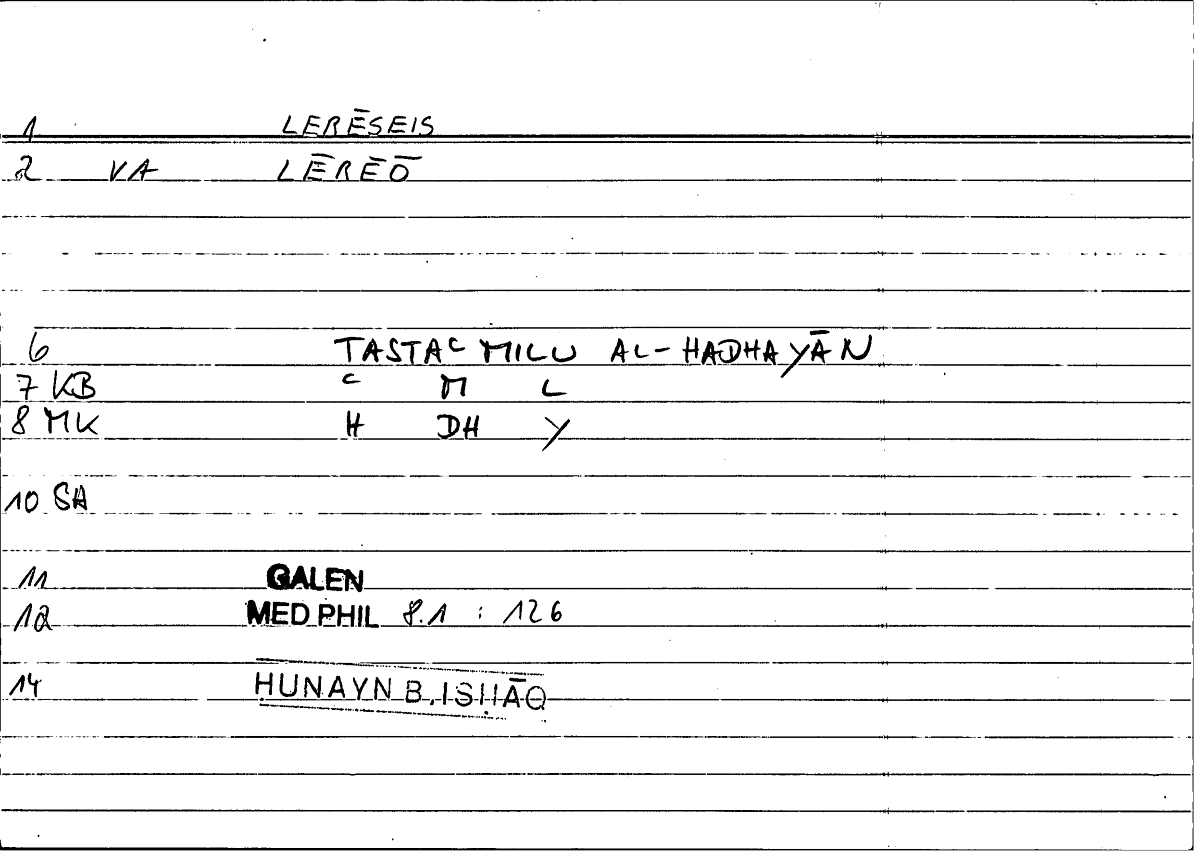 1 LERĒSEIS
2 VA LĒRĒŌ
6 TASTAᶜMILU AL-HADHAYĀN
7 KB ᶜ M L
8 MK H DH Y
10 SA
11 GALEN
12 MED PHIL 8.1 : 126
14 ḤUNAYN B. ISḤĀQ